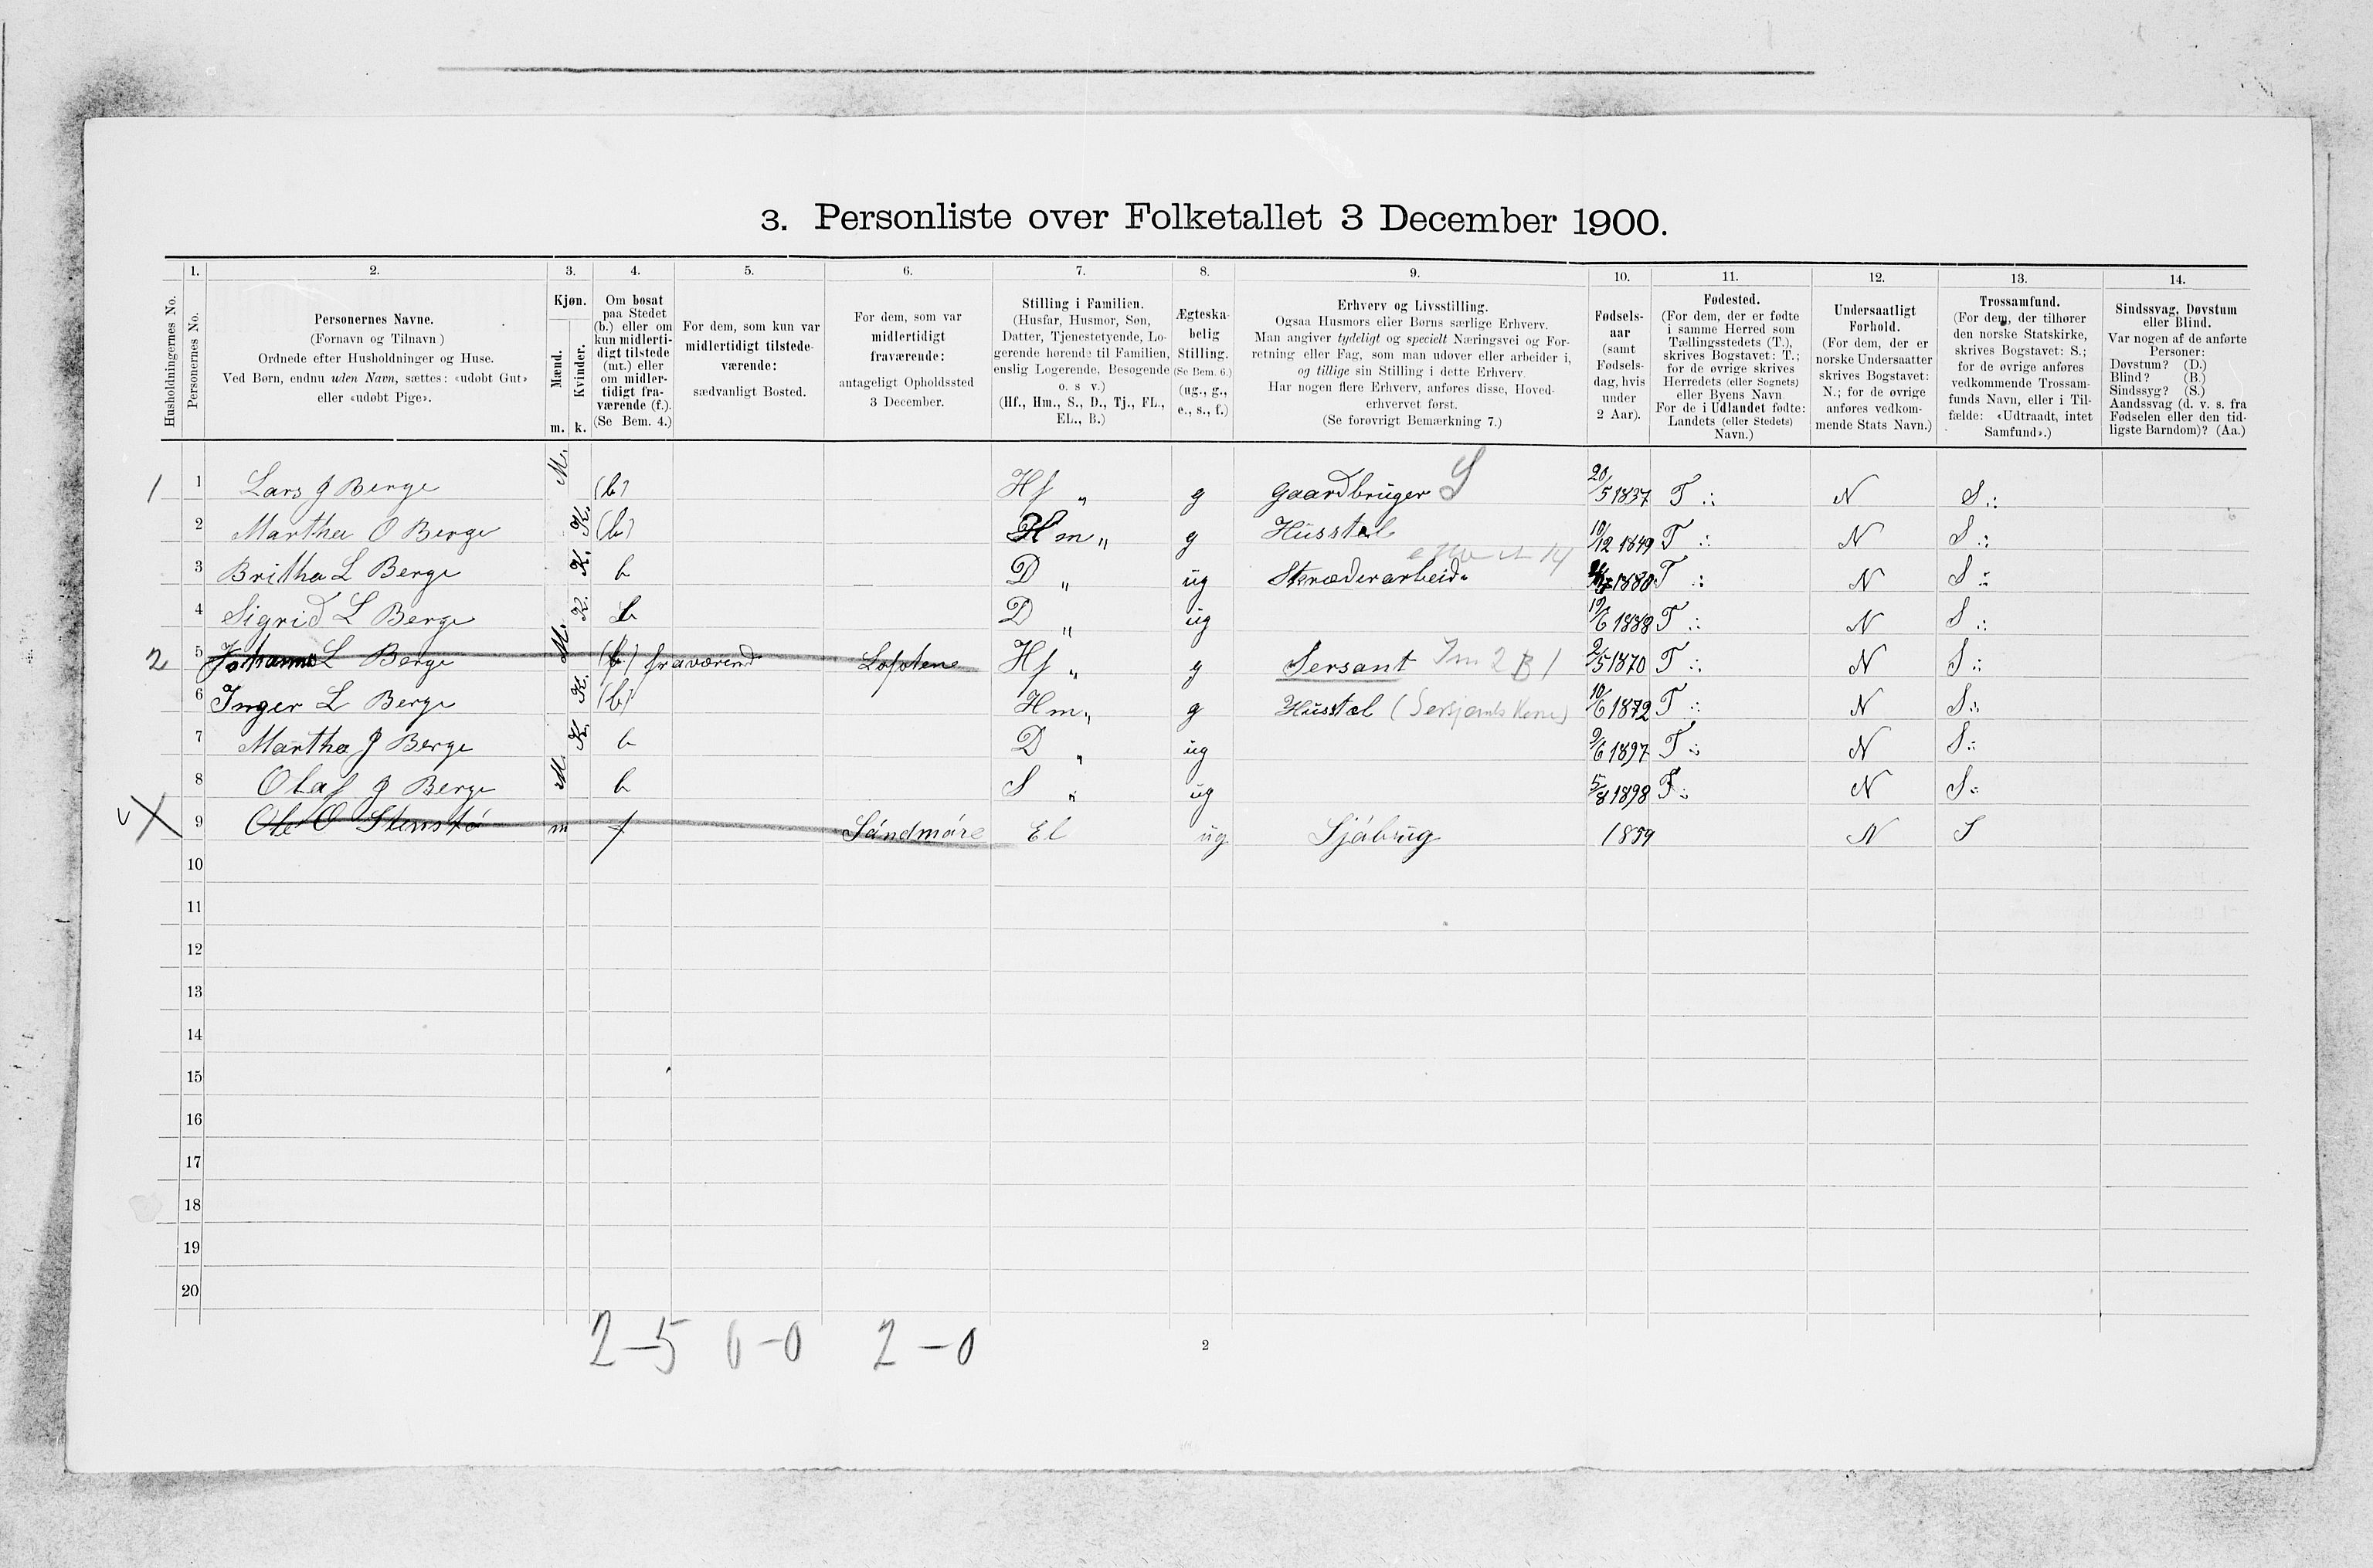 3. Personliste over Folketallet 3 December 1900.
1. 2. 3. 4. 5. 6. 7. 8. 9. 10. 11. 12. 13. 14.
Husholdningernes No.
Personernes No.
Personernes Navne.
(Fornavn og Tilnavn)
Ordnede efter Husholdninger og Huse.
Ved Børn, endnu uden Navn, sættes: «udøbt Gut»
eller «udøbt Pige».
Kjøn.
Mænd.
Kvinder.
m. k.
Om bosat
paa Stedet
(b.) eller om
kun midlerti-
digt tilstede
(mt.) eller
om midler-
tidigt fra-
værende (f.).
(Se Bem. 4.)
For dem, som kun var
midlertidigt tilstede-
værende:
sædvanligt Bosted.
For dem, som var
midlertidigt
fraværende:
antageligt Opholdssted
3 December.
Stilling i Familien.
(Husfar, Husmor, Søn,
Datter, Tjenestetyende, Lo-
gerende hørende til Familien,
enslig Logerende, Besøgende
o. s v.)
(Hf., Hm., S., D., Tj., FL.,
EL., B.)
Ægteska-
belig
Stilling.
(Se Bem. 6.)
(ug., g.,
e., s., f.)
Erhverv og Livsstilling.
Ogsaa Husmors eller Børns særlige Erhverv.
Man angiver tydeligt og specielt Næringsvei og For-
retning eller Fag, som man udøver eller arbeider i,
og tillige sin Stilling i dette Erhverv.
Har nogen flere Erhverv, anføres disse, Hoved-
erhvervet først.
(Se forøvrigt Bemærkning 7.)
Fødsels-
aar
(samt
Fødsels-
dag, hvis
under
2 Aar).
Fødested.
(For dem, der er fødte
i samme Herred som
Tællingsstedets (T.),
skrives Bogstavet: T.;
for de øvrige skrives
Herredets (eller Sognets)
eller Byens Navn
For de i Udlandet fødte:
Landets (eller Stedets)
Navn.)
Undersaatligt
Forhold.
(For dem, der er
norske Undersaatter
skrives Bogstavet:
N.; for de øvrige
anføres vedkom-
mende Stats Navn.)
Trossamfund.
(For dem, der tilhører
den norske Statskirke,
skrives Bogstavet: S.;
for de øvrige anføres
vedkommende Trossam-
funds Navn, eller i Til-
fælde: «Udtraadt, intet
Samfund».)
Sindssvag, Døvstum
eller Blind.
Var nogen af de anførte
Personer:
Døvstum? (D.)
Blind? (B.)
Sindssyg? (S.)
Aandssvag (d. v. s. fra
Fødselen eller den tid-
ligste Barndom)? (Aa.)
1 1 Lars J Berge M. (b) Hf „ g gaardbruger S 20/5 1837 T .:. N S .:
2 Martha O Berge K. (b) Hm „ g Husstel 10/12 1849 T .:. N S .:
3 Britha L Berge K. b D „ ug Skræderarbeide 1880 T .:. N S .:
4 Sigrid L Berge K. b D „ ug 19/6 1888 T .:. N S .:
2 5 Johanns L Berge M. (b) fraværend Lofotene Hf „ g Sersant 2 B 1 2/5 1870 T .:. N S .:
6 Inger L Berge K. (b) Hm „ g Husstel (Sersjants Kone) 10/6 1872 T .:. N S .:
7 Martha J Berge K. b D „ ug 9/6 1897 T .:. N S .:
8 Olaf J Berge M. b S „ ug 5/8 1898 T .:. N S .:
X 9 Ole O Stensto m f Sándmóre El ug Sjábrug 1859 N S
10
11
12
13
14
15
16
17
18
19
20
2 – 5 0 – 0 2 – 0
2